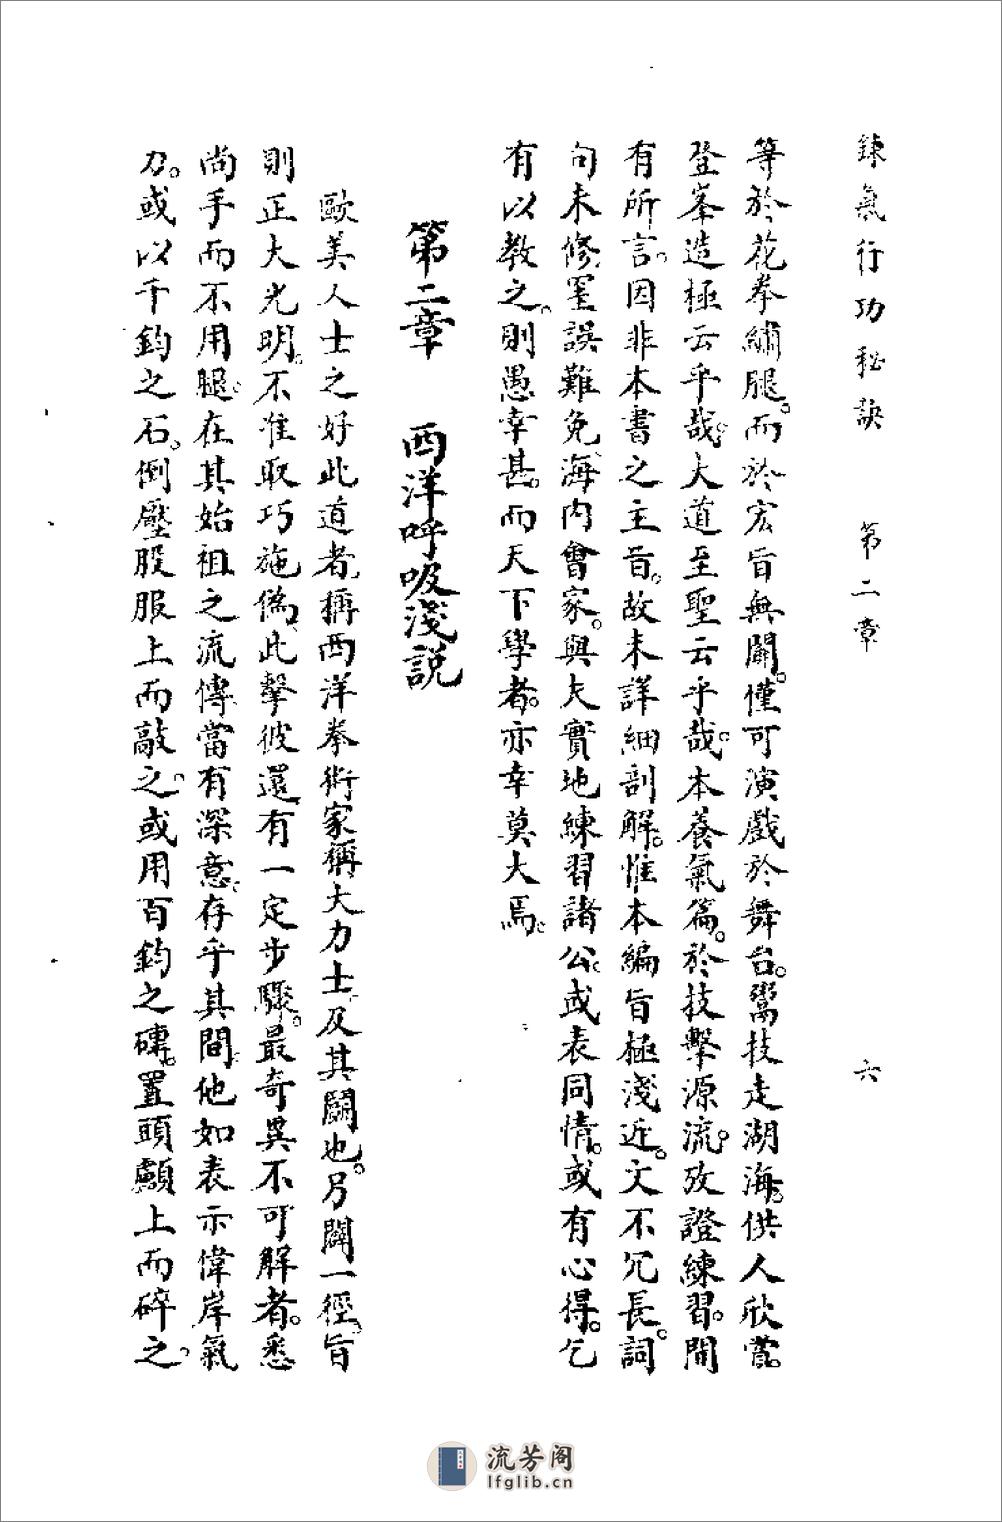 鍊氣行功秘訣 第二章 六
等於花拳繡腿。而於宏旨無關。僅可演戲於舞台。鬻技走湖海。供人欣賞。
登峯造極云乎哉。大道至聖云乎哉。本養氣篇。於技擊源流。攷證練習。間
有所言。因非本書之主旨。故未詳細剖解。惟本編旨極淺近。文不冗長。詞
句未修。罣誤難免。海內會家。與夫實地練習諸公。或表同情。或有心得。乞
有以教之。則愚幸甚。而天下學者。亦幸莫大焉。
第二章 西洋呼吸淺說
歐美人士之好此道者。稱西洋拳術家。稱大力士。及其鬭也。另闢一徑。旨
則正大光明。不准取巧施偽。此擊彼還。有一定步驟。最奇異不可解者。悉
尚手而不用腿。在其始祖之流傳。當有深意。存乎其間。他如表示偉岸氣
力。或以千鈞之石。倒壓股服上而敲之。或用百鈞之磚。置頭顱上而碎之。
流芳阁
lfglib.cn